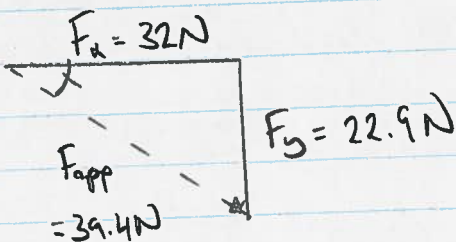 Fx = 32N
Fy = 22.9N
Fapp
= 39.4N